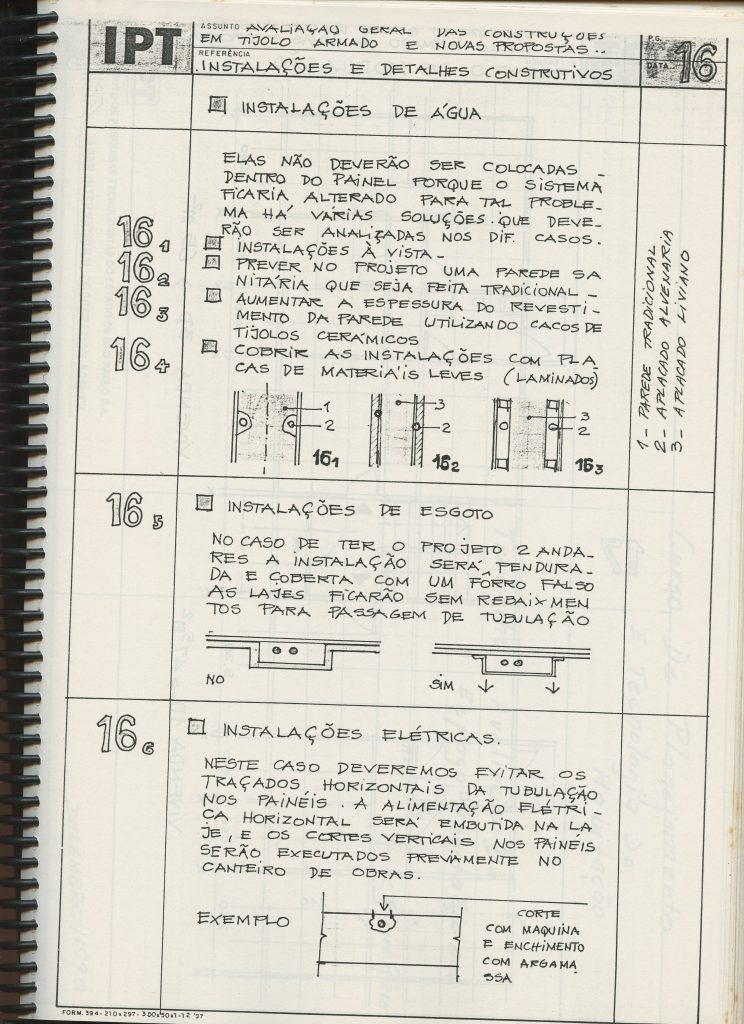 IPT
ASSUNTO AVALIAÇÃO GERAL DAS CONSTRUÇÕES
EM TIJOLO ARMADO E NOVAS PROPOSTAS..
REFERÊNCIA
INSTALAÇÕES E DETALHES CONSTRUTIVOS
PG.
DATA
16
INSTALAÇÕES DE ÁGUA
ELAS NÃO DEVERÃO SER COLOCADAS -
DENTRO DO PAINEL PORQUE O SISTEMA
FICARIA ALTERADO PARA TAL PROBLE-
MA HÁ VÁRIAS SOLUÇÕES. QUE DEVE-
RÃO SER ANALIZADAS NOS DIF. CASOS.
16 1 INSTALAÇÕES À VISTA -
16 2 PREVER NO PROJETO UMA PAREDE SA
NITÁRIA QUE SEJA FEITA TRADICIONAL -
16 3 AUMENTAR A ESPESSURA DO REVESTI-
MENTO DA PAREDE UTILIZANDO CACOS DE
TIJOLOS CERÁMICOS
16 4 COBRIR AS INSTALAÇÕES COM PLA
CAS DE MATERIÁIS LEVES (LAMINADOS)
1 2 16 1
3 2 16 2
3 2 16 3
1- PAREDE TRADICIONAL
2- APLACADO ALVENARIA
3- APLACADO LIVIANO
16 5 INSTALAÇÕES DE ESGOTO
NO CASO DE TER O PROJETO 2 ANDA-
RES A INSTALAÇÃO SERÁ PENDURA-
DA E COBERTA COM UM FORRO FALSO
AS LAJES FICARÃO SEM REBAIXMEN
TOS PARA PASSAGEM DE TUBULAÇÃO
NO
SIM
16 6 INSTALAÇÕES ELÉTRICAS.
NESTE CASO DEVEREMOS EVITAR OS
TRAÇADOS HORIZONTAIS DA TUBULAÇÃO
NOS PAINÉIS. A ALIMENTAÇÃO ELÉTRI-
CA HORIZONTAL SERÁ EMBUTIDA NA LA
JE, E OS CORTES VERTICAIS NOS PAINÉIS
SERÃO EXECUTADOS PREVIAMENTE NO
CANTEIRO DE OBRAS.
EXEMPLO
CORTE
COM MAQUINA
E ENCHIMENTO
COM ARGAMA
SSA